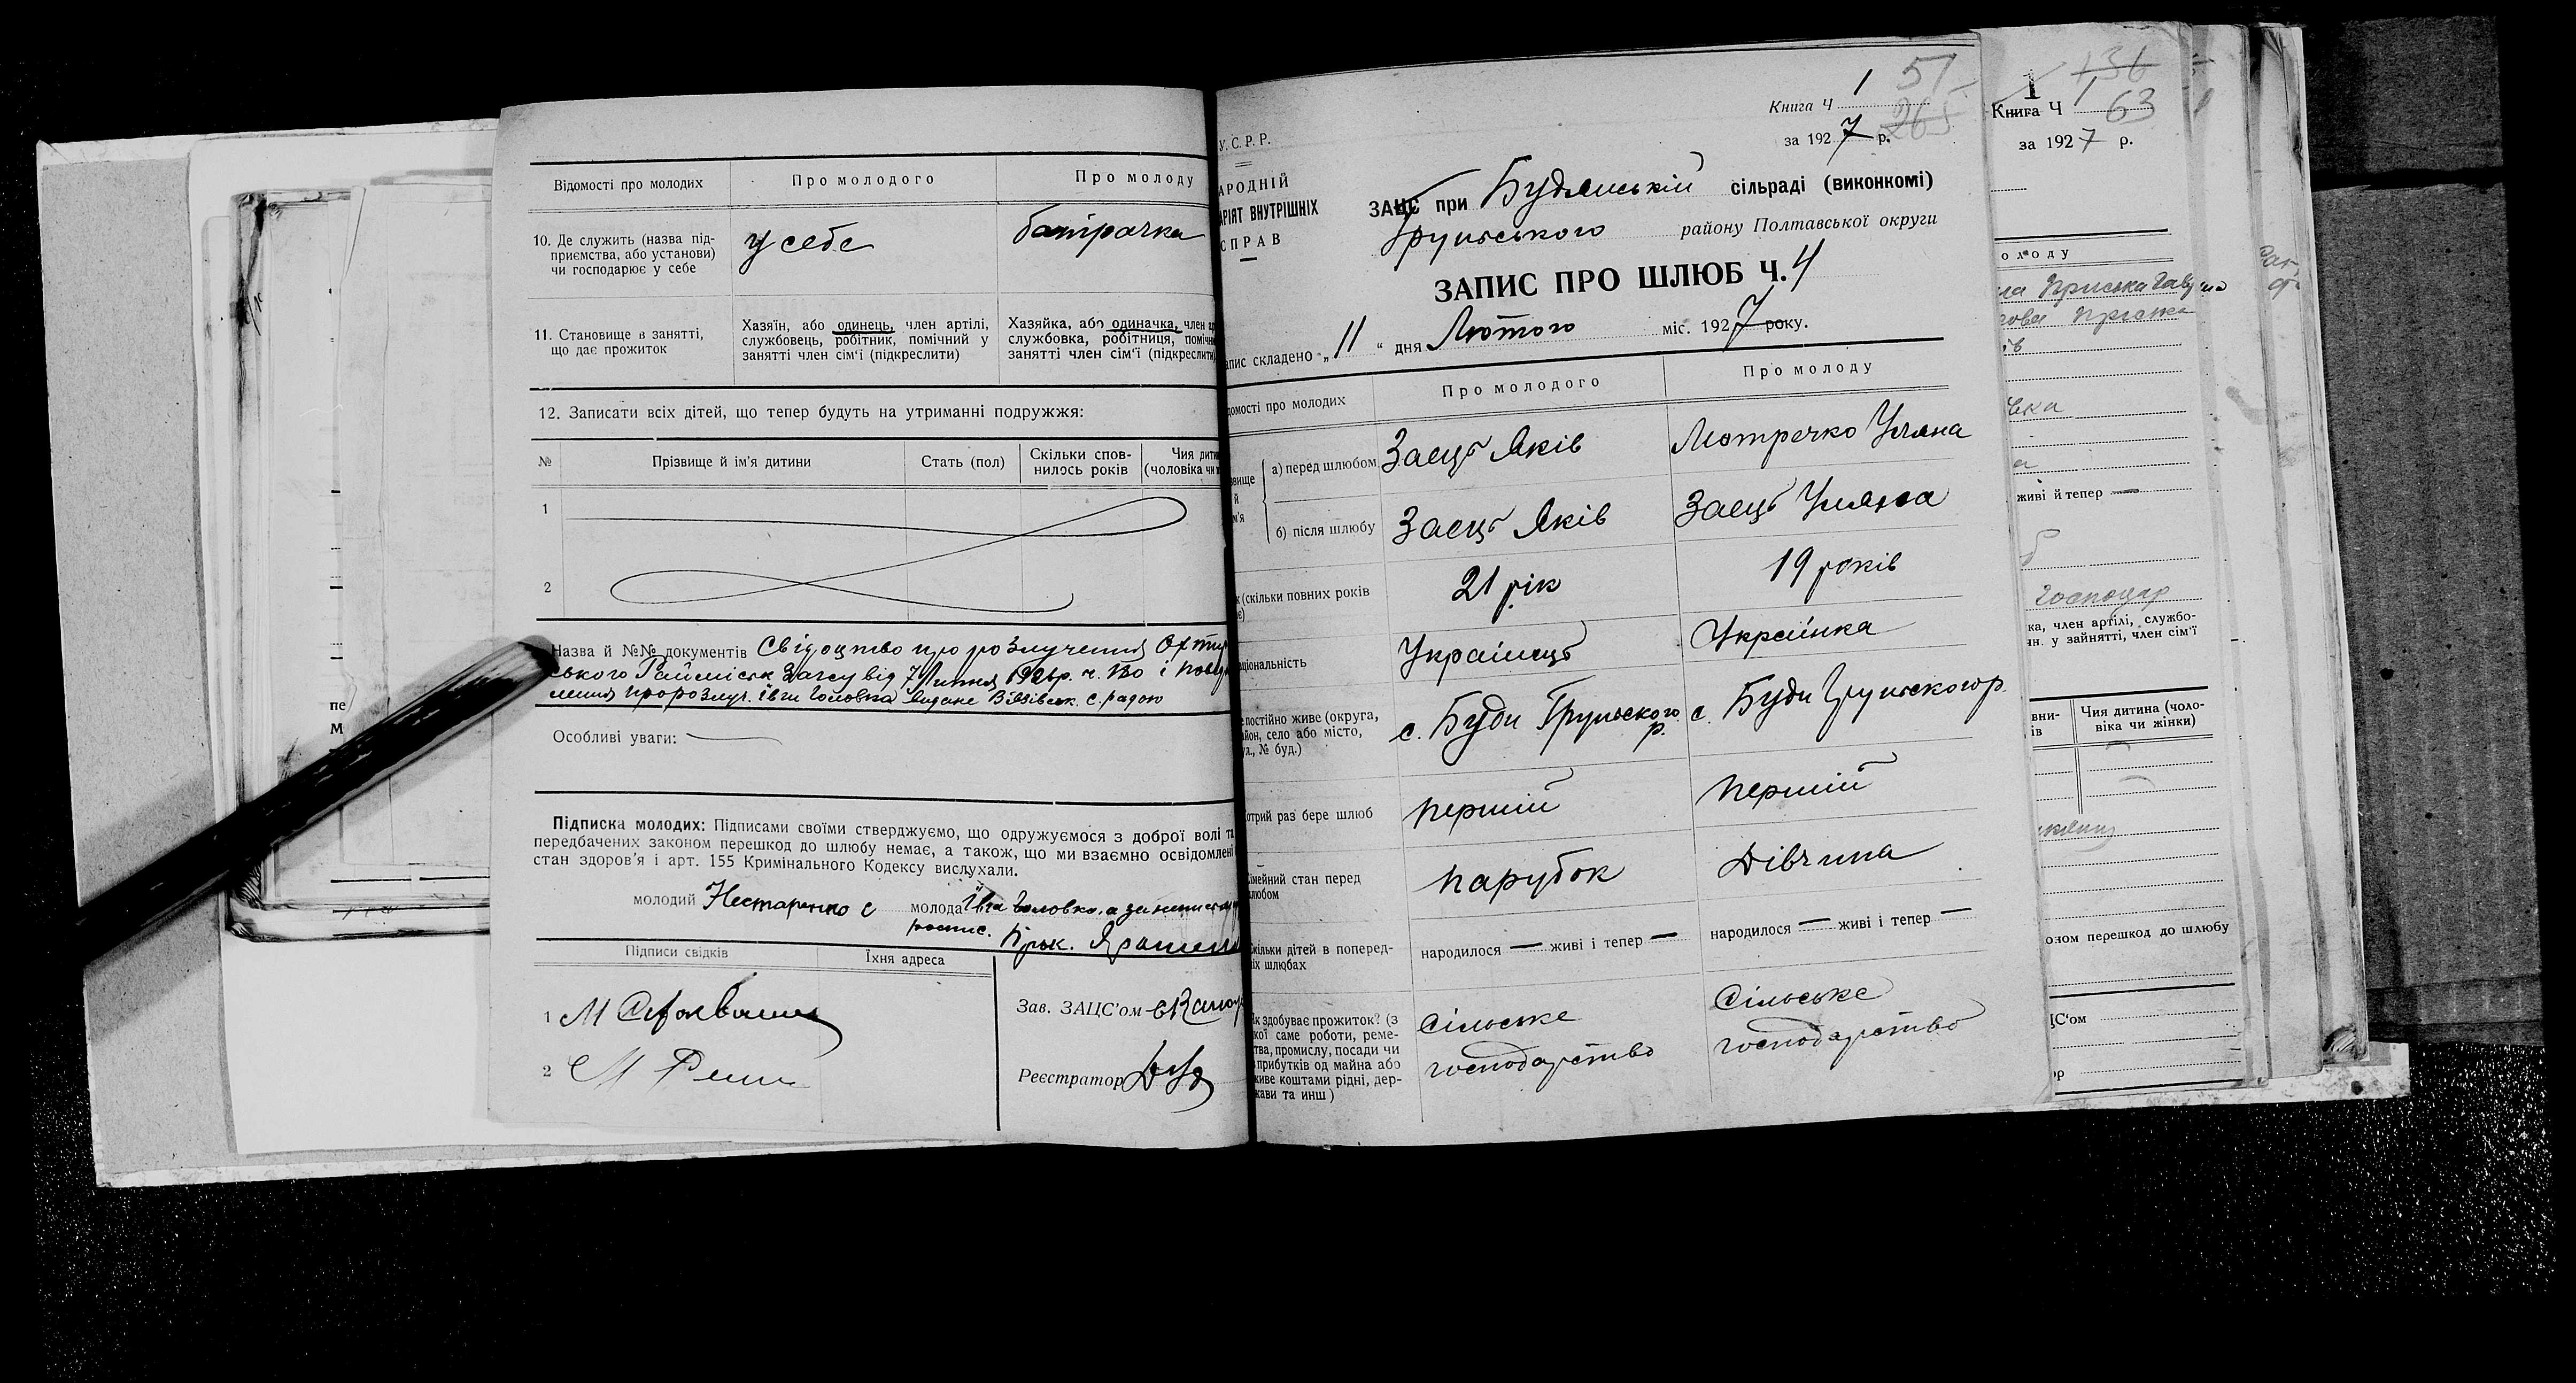 Відомості про молодих Про молодого Про молоду
10. Де служить (назва під-
приємства, або установи)
чи господарює у себе
у себе батрачка
11. Становище в занятті,
що дає прожиток
Хазяїн, або одинець, член артілі,
службовець, робітник, помічний у
занятті член сім'ї (підкреслити)
Хазяйка, або одиначка, член ар
службовка, робітниця, помічн
занятті член сім'ї (підкреслити)
12. Записати всіх дітей, що тепер будуть на утриманні подружжя:
№ Прізвище й ім'я дитини Стать (пол) Скільки спов-
нилось років Чия дити
(чоловіка чи
1
2
Назва й №№ документів Свідоцтво про розлучення Охтир
ського Райміськ Загсу від 7 Липня р. ч. і повід
лення про розлуч. Івги Головка видане с. радою
Особливі уваги:
Підписка молодих: Підписами своїми стверджуємо, що одружуємося з доброї волі та
передбачених законом перешкод до шлюбу немає, а також, що ми взаємно освідомлені
стан здоров'я і арт. 155 Кримінального Кодексу вислухали.
молодий Нестаренко С молода Івга Головко, а за
роспис.
Підписи свідків Їхня адреса
1 М
Зав. ЗАЦС'ом
2 М
Реєстратор
У.С.Р.Р.
АРОДНІЙ
АРІЯТ ВНУТРІШНІХ
СПРАВ
Книга Ч 1 51
за 1927 р. 265
ЗАЦС при Будянській сільраді (виконкомі)
Груньського району Полтавської округи
ЗАПИС ПРО ШЛЮБ Ч. 4
апис складено „11“ дня Лютого міс. 1927 року.
домості про молодих Про молодого Про молоду
звище
й
м'я
а) перед шлюбом Заєць Яків Мотречко Уляна
б) після шлюбу Заєць Яків Заєць Уляна
к (скільки повних років
є) 21 рік 19 років
аціональність Українець Українка
е постійно живе (округа,
айон, село або місто,
ул., № буд.)
с. Буди Груньского р. с. Буди Груньского р.
отрий раз бере шлюб першій першій
сімейний стан перед
шлюбом парубок Дівчина
Скільки дітей в поперед-
ніх шлюбах
народилося — живі і тепер — народилося — живі і тепер —
Як здобуває прожиток? (з
якої саме роботи, реме-
тва, промислу, посади чи
прибутків од майна або
живе коштами рідні, дер-
жави та инш)
Сільське
господарство
Сільське
господарство
1 136
Книга Ч 1 63
за 1927 р.
олоду
ла Приська
вка
живі й тепер —
Господар
ка, член артілі, службо-
чн. у зайнятті, член сім'ї
вни-
ів
Чия дитина (чоло-
віка чи жінки)
оном перешкод до шлюбу
ЦС'ом
ор
пе
м